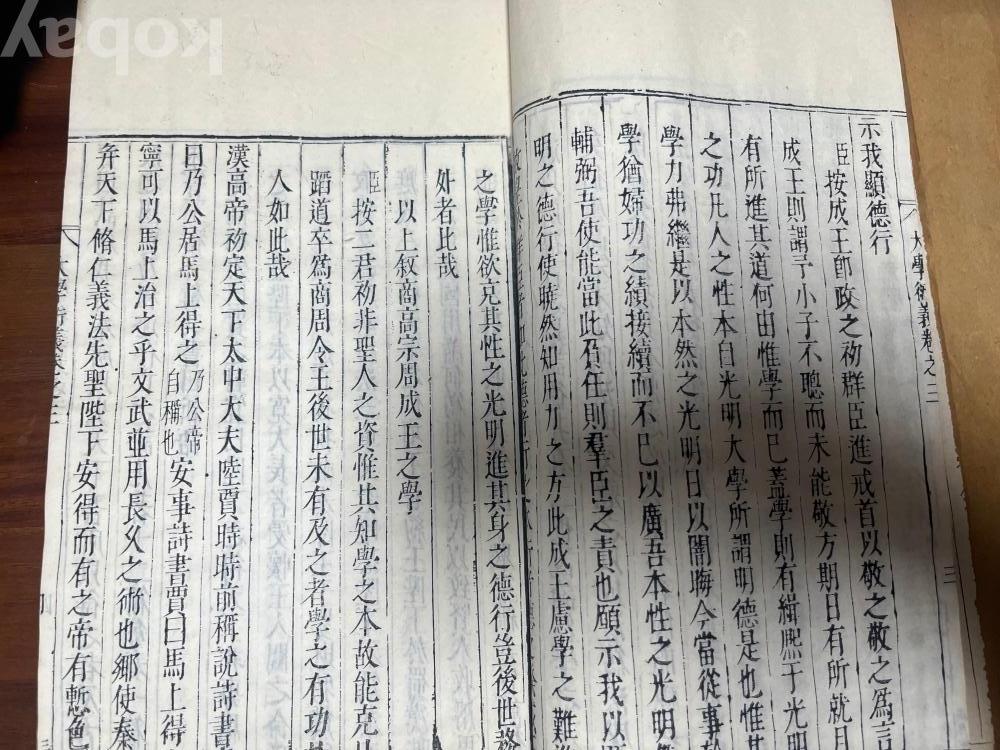 示我顯德行
臣按成王卽政之初群臣進戒首以敬之敬之爲言
成王則謂予小子不聰而未能敬方期日有所就月
有所進其道何由惟學而已蓋學則有緝熙于光明
之功凡人之性本自光明大學所謂明德是也惟其
學力弗繼是以本然之光明日以闇晦今當從事於
學猶婦功之績接續而不已以廣吾本性之光明
輔弼吾使能當此負任則羣臣之責也願示我以
明之德行使曉然知用力之方此成王慮學之難
大學衍義卷之三
三
之學惟欲克其性之光明進其身之德行豈後世務
外者比哉
以上叙商高宗周成王之學
臣按二君初非聖人之資惟其知學之本故能克
蹈道卒爲商周令王後世未有及之者學之有功
人如此哉
漢高帝初定天下太中大夫陸賈時時前稱說詩書
曰乃公居馬上得之乃公帝自稱也安事詩書賈曰馬上得
寧可以馬上治之乎文武並用長久之術也鄉使秦
幷天下脩仁義法先聖陛下安得而有之帝有慙色
大學衍義卷之三
kobay